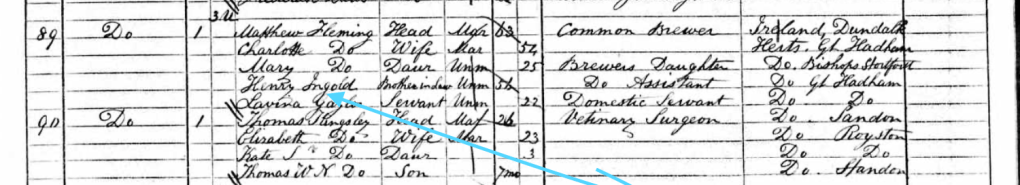 3M
89 Do 1 Matthew Fleming Head Mar 63 Common Brewer Ireland, Dundalk
Charlotte Do Wife Mar 54 Herts. Gt Hadham
Mary Do Daur Unm 25 Brewers Daughter Do. Bishops Stortford
Henry Ingold Brother in law Unm 56 Do Assistant Do Gt Hadham
Lavina Servant Unm 22 Domestic Servant Do Do
90 Do 1 Thomas Kingsley Head Mar 26 Vetinary Surgeon Do Sandon
Elizabeth Do Wife Mar 23 Do Royston
Kate Do Daur 3 Do Do
Thomas W N Do Son 7mo Do. Standon